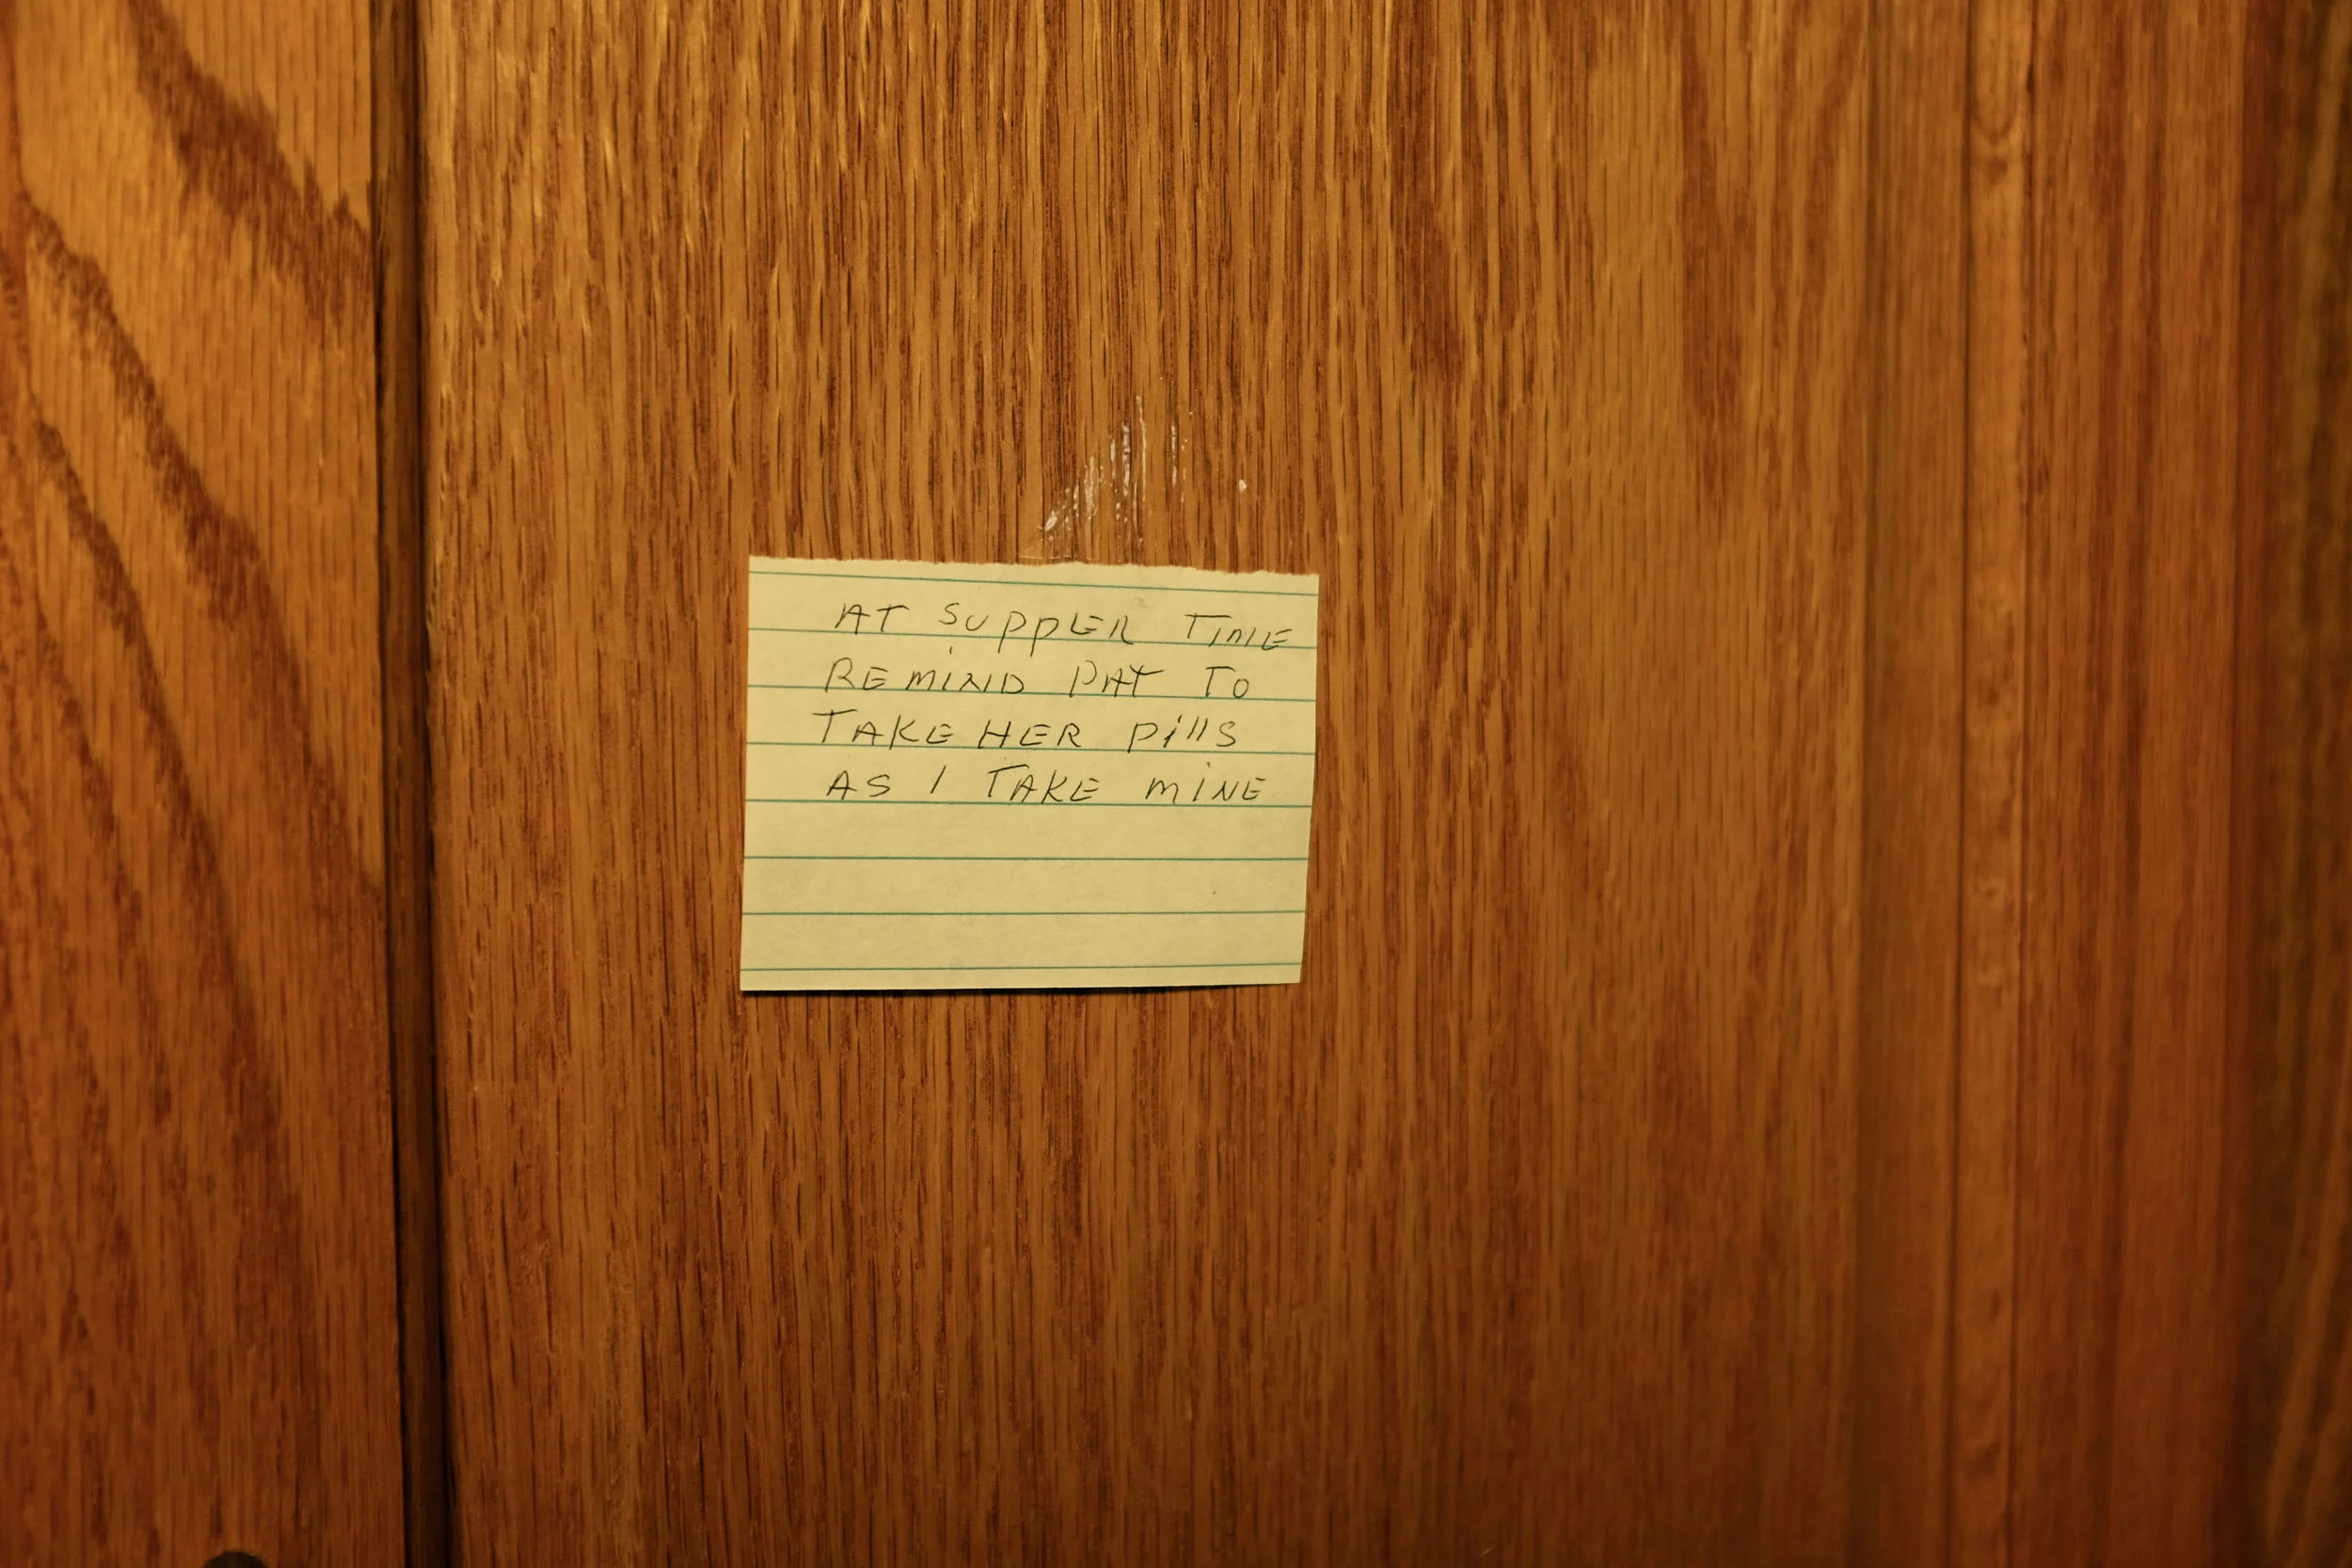 AT SUPPER TIME
REMIND PAT TO
TAKE HER Pills
AS I TAKE MINE